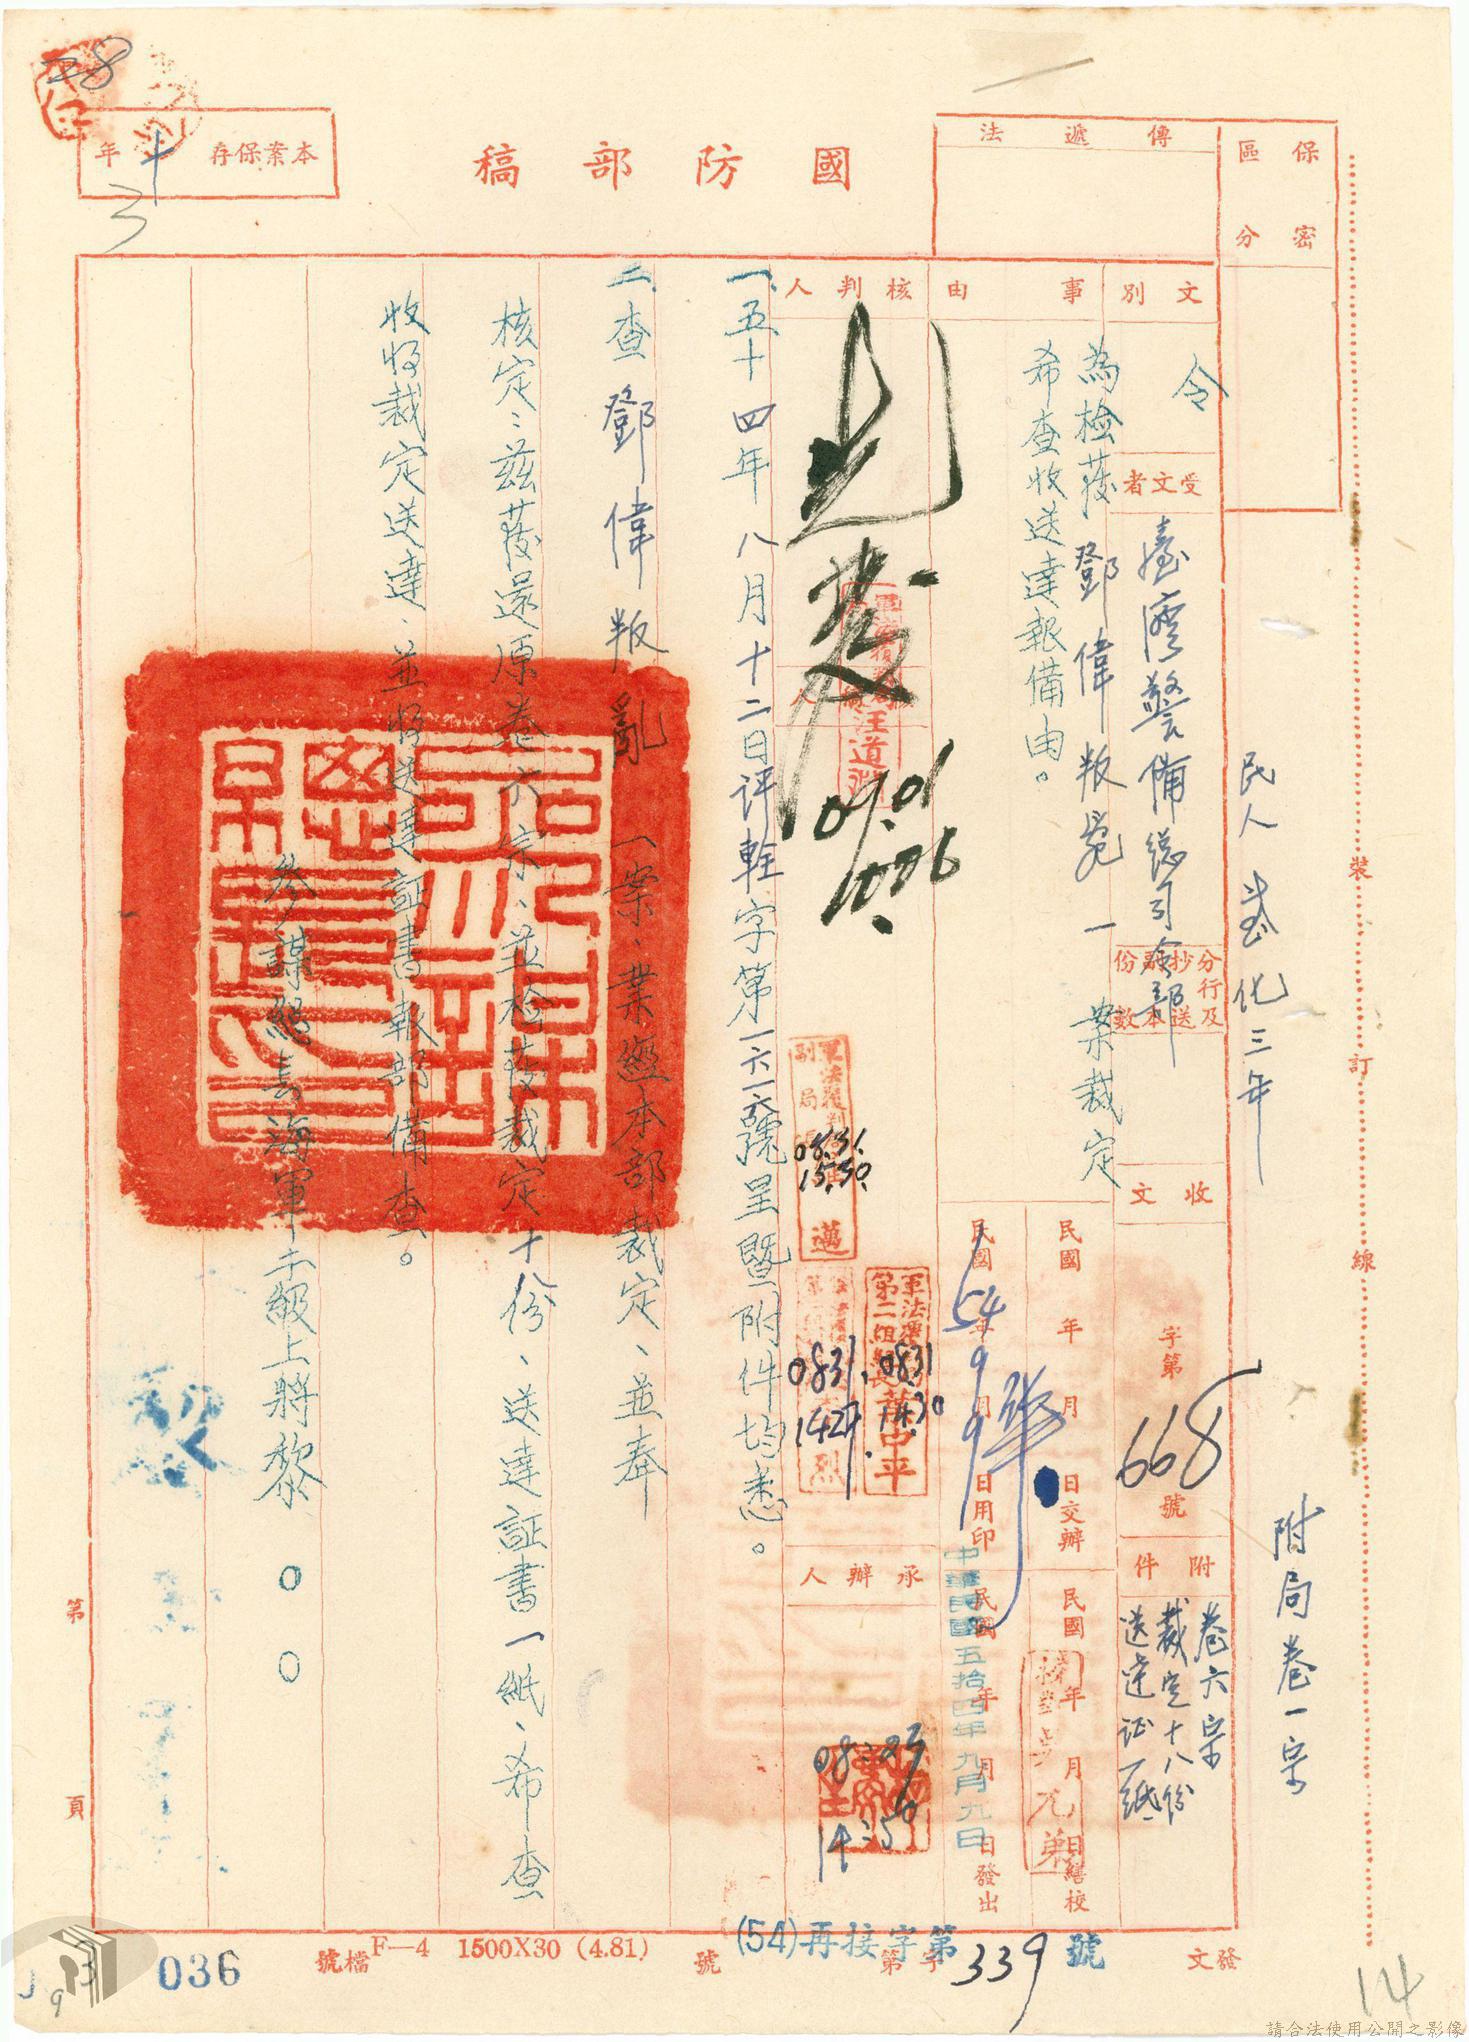 保密
區分
傳遞法
國防部稿
本案保存十年
28
3
文別
令
事由
為檢發鄧偉叛亂一案裁定
希查收送達報備由。
受文者
臺灣警備總司令部
分行及抄送
副本份數
民人感化三年
收文
字第
668
號
附件
卷六宗
裁定十八份
送達证一紙
附局卷一宗
核判人
民國 年 月 日交辦
民國54年9月9日用印
民國 年 月 日繕校
民國 年 月 日發出
中華民國五拾四年九月九日
汪道淵
09.01
軍法覆判局
副局長
邁
08.31.
15.30.
軍法覆
第二組組長
葉中平
0831
1430
0831
1427
承辦人
08:23
14:50
一、五十四年八月十二日评輇字第一六一六號呈暨附件均悉。
二、查鄧偉叛亂一案、業經本部裁定、並奉
核定、茲發還原卷六宗、並檢發裁定十八份、送達証書一紙、希查
收將裁定送達、並將送達証書報部備查。
參謀總長海軍二級上將黎○○
裝
訂
線
第 頁
發文
(54)再接字第339號
字第
號
F—4 1500X30 (4.81)
檔號
036
14
請合法使用公開之影像